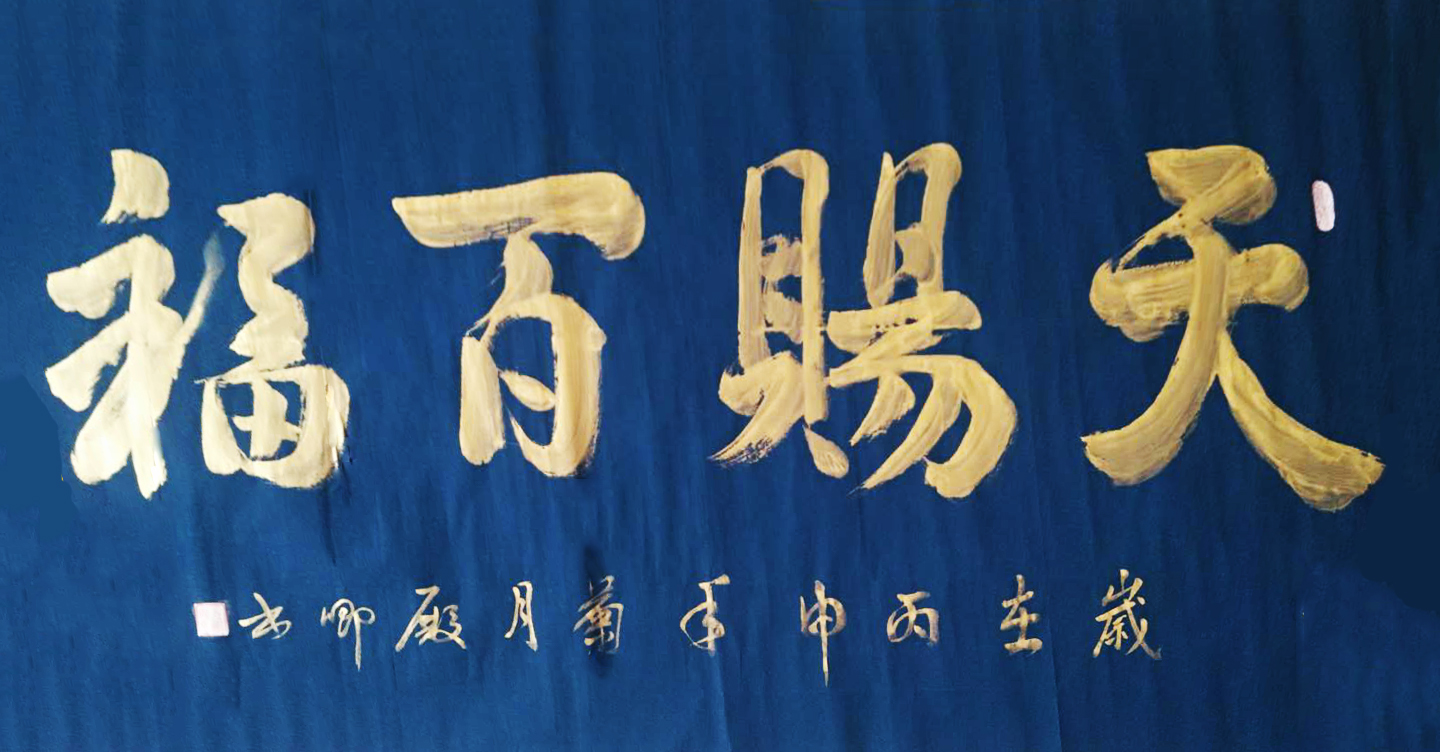 天賜百福
歲在丙申年菊月殿卿书